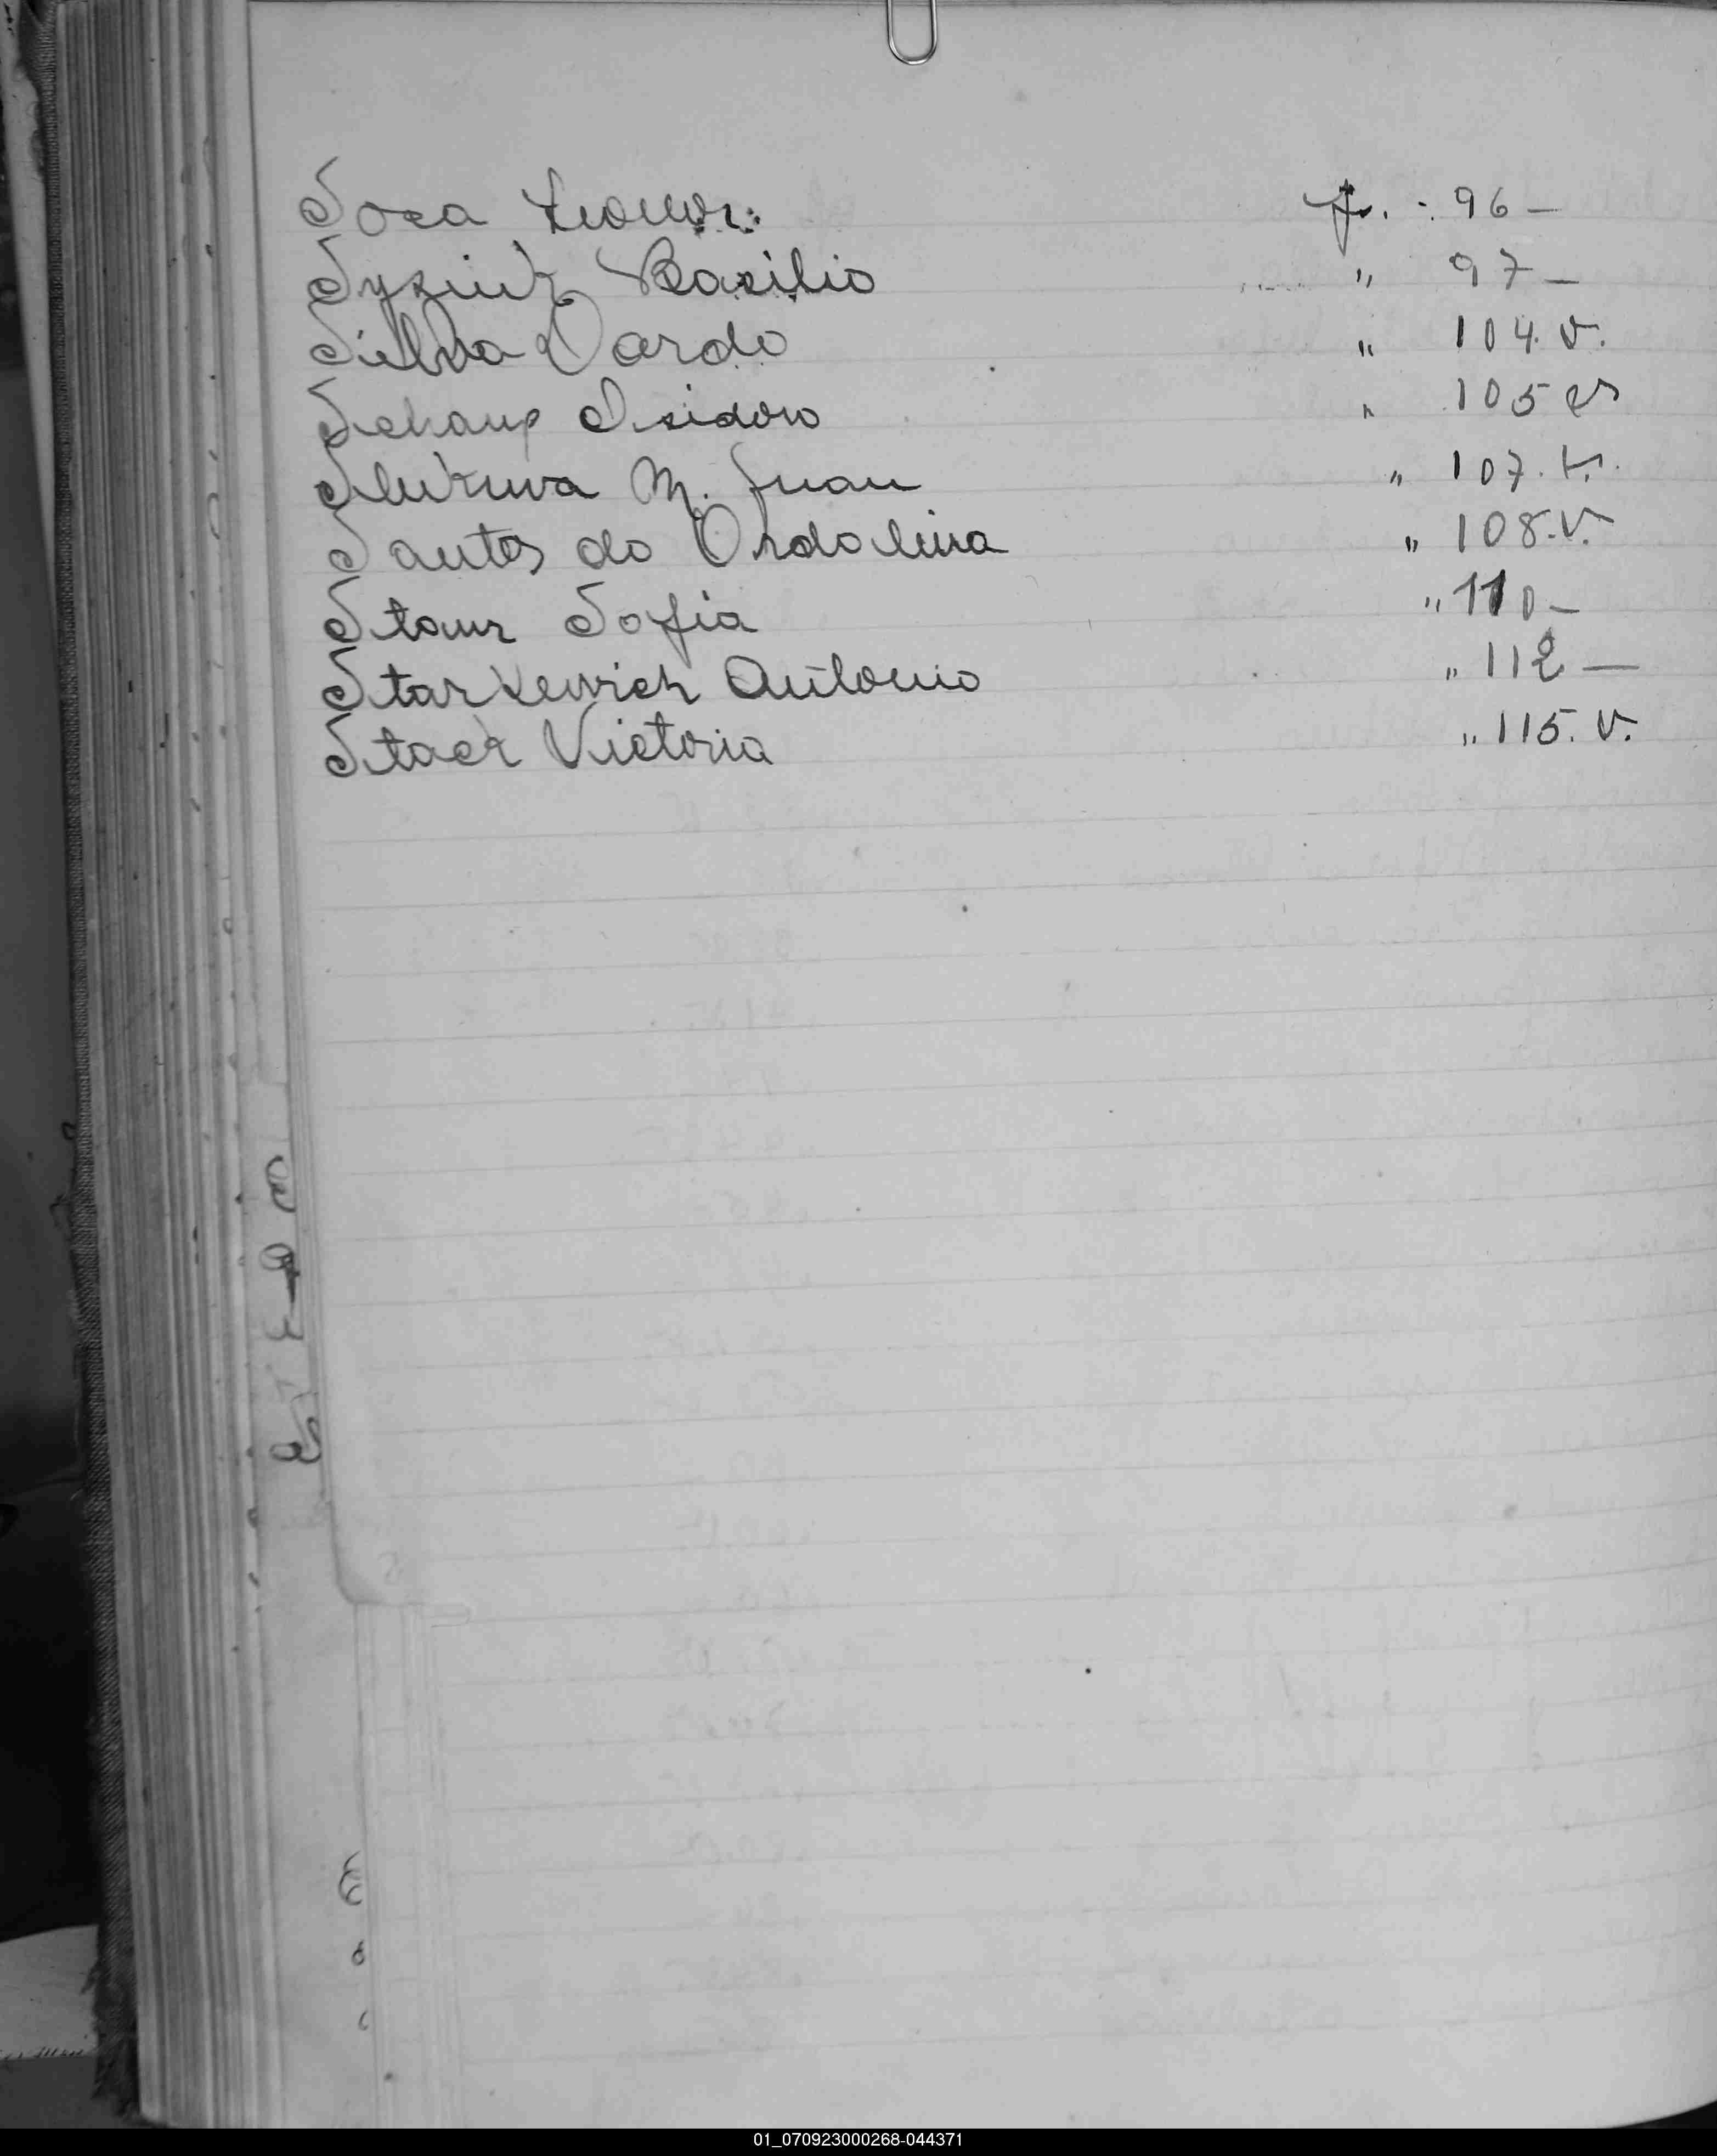 Sosa Leonor: f. - 96 -
Syzuik Basilio " 97 -
Silva Dardo " 104. v.
Schaup Isidoro " 105
M. Juan " 107. v.
Santos do Ordalina " 108. v.
Stour Sofia " 110 -
Starkevich Antonio " 112 -
Stack Victoria " 115. v.
01_070923000268-044371